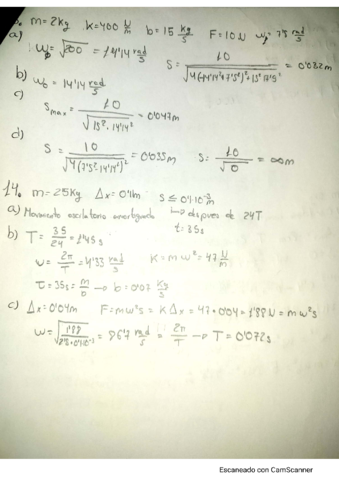 m=2kg K=400 N/m b=15 kg/s F=10N ωf=7'5 rad/s
a)
ω₀=√200 = 14'14 rad/s
S= 10/√(4(14'14²-7'5²)²+15²·7'5²) = 0'032m
b) ω₀=14'14 rad/s
c)
Smax= 10/√(15²·14'14²) =0'047m
d)
S= 10/√(4(7'5²-14'14²)²) =0'035m S= 10/√0 = ∞m
14. m=25kg Δx=0'1m S≤0'1·10⁻³m
a) Movimiento oscilatorio amortiguado ↳ después de 24T
t=35s
b) T= 35/24 =1'45s
ω= 2π/T =4'33 rad/s K=mω²=47 N/m
τ=35s= m/b → b=0'07 kg/s
c) Δx=0'04m F=mω²s=KΔx=47·0'04=1'88N=mω²s
= 2π/T → T=0'072s
Escaneado con CamScanner